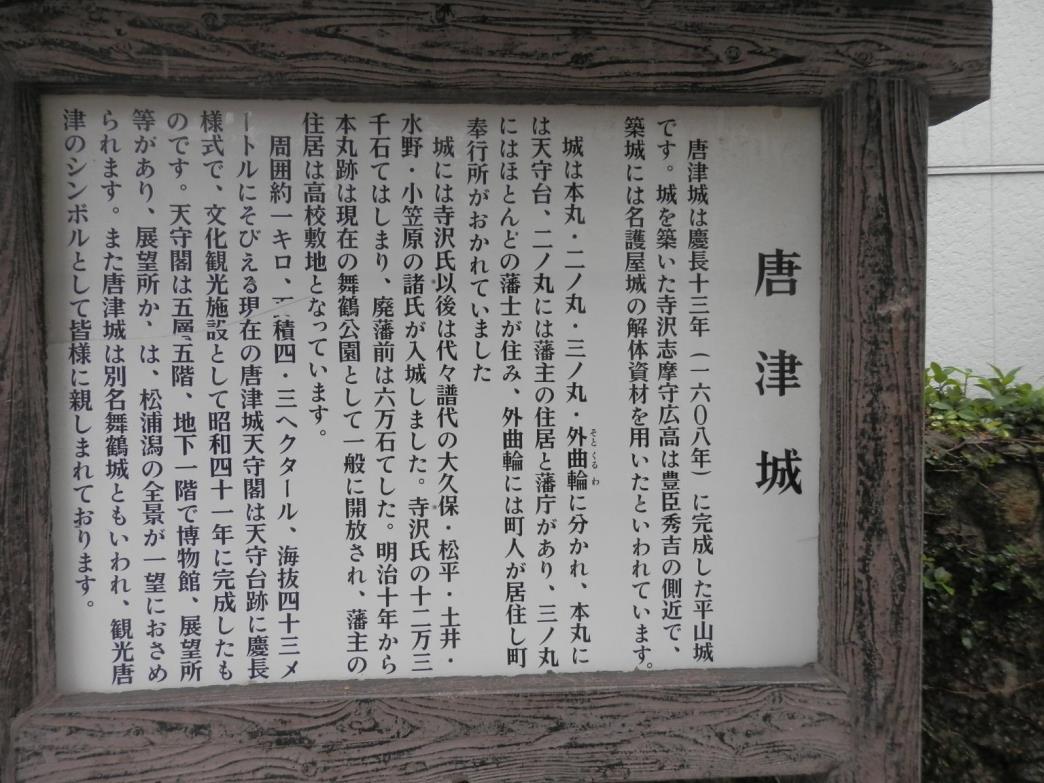 唐津城
唐津城は慶長十三年（一六〇八年）に完成した平山城
です。城を築いた寺沢志摩守広高は豊臣秀吉の側近で、
築城には名護屋城の解体資材を用いたといわれています。
城は本丸・二ノ丸・三ノ丸・外曲輪に分かれ、本丸に
そとくるわ
は天守台、二ノ丸には藩主の住居と藩庁があり、三ノ丸
にはほとんどの藩士が住み、外曲輪には町人が居住し町
奉行所がおかれていました
城には寺沢氏以後は代々譜代の大久保・松平・土井・
水野・小笠原の諸氏が入城しました。寺沢氏の十二万三
千石てはしまり、廃藩前は六万石てした。明治十年から
本丸跡は現在の舞鶴公園として一般に開放され、藩主の
住居は高校敷地となっています。
周囲約一キロ、積四・三ヘクタール、海抜四十三メ
ートルにそびえる現在の唐津城天守閣は天守台跡に慶長
様式で、文化観光施設として昭和四十一年に完成したも
のです。天守閣は五層、五階、地下一階で博物館、展望所
等があり、展望所か、は、松浦潟の全景が一望におさめ
られます。また唐津城は別名舞鶴城ともいわれ、観光唐
津のシンボルとして皆様に親しまれております。